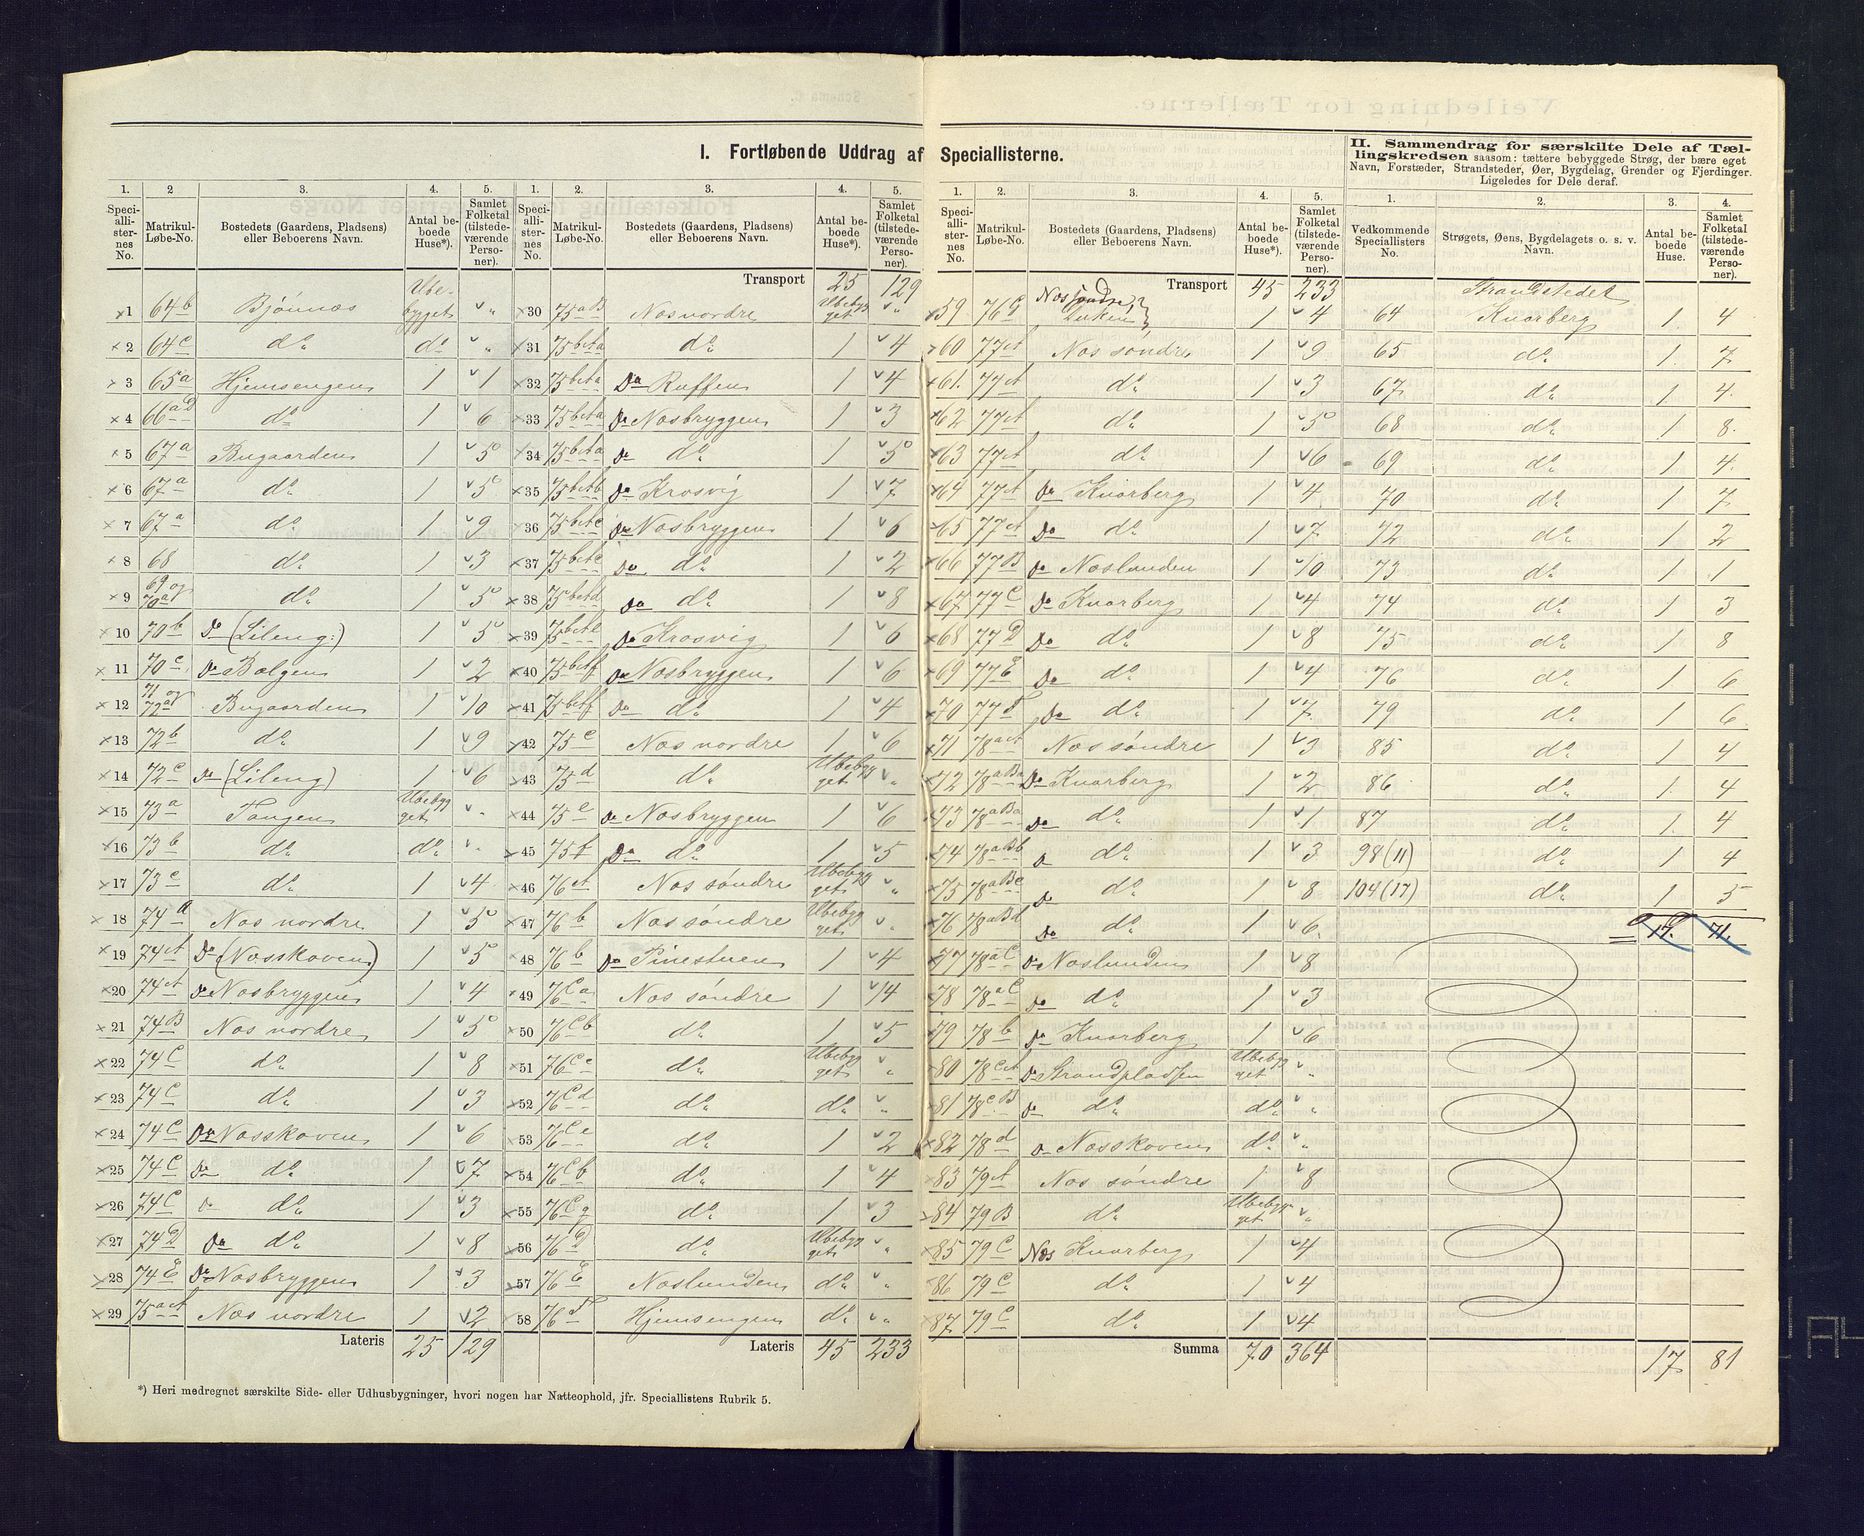 I. Fortløbende Uddrag af Speciallisterne.
II. Sammendrag for særskilte Dele af Tæl-
lingskredsen saasom: tættere bebyggede Strøg, der bære eget
Navn, Forstæder, Strandsteder, Øer, Bygdelag, Grender og Fjerdinger.
Ligeledes for Dele deraf.
1. 2 3. 4. 5.
Speciallisternes No. Matrikul-Løbe-No. Bostedets (Gaardens, Pladsens) eller Beboerens Navn. Antal beboede Huse*). Samlet Folketal (tilstedeværende Personer).
1 64b Bjönnæs Ubebygget "
2 64c do do "
3 65a Hjemsengen 1 1
4 66aD do 1 6
5 67a Bugaarden 1 5
6 67a do 1 5
7 67a do 1 9
8 68 do 1 3
9 69 og 70a do 1 5
10 70b Do (Lileng:) 1 5
11 70c Do Bolgen 1 2
12 71 og 72a Bugaarden 1 10
13 72b do 1 9
14 72c Do (Lileng) 1 6
15 73a Tangen Ubebygget "
16 73b do do "
17 73c do 1 4
18 74A Næs nordre 1 5
19 74A Do (Næsskoven) 1 5
20 74A Do Næsbryggen 1 4
21 74B Næs nordre 1 5
22 74C do 1 8
23 74C do 1 3
24 74C Do Næsskoven 1 6
25 74C Do do 1 7
26 74C do 1 3
27 74D Do do 1 8
28 74E Do Næsbryggen 1 3
29 75aA Næs nordre 1 2
Lateris 25 129
1. 2. 3. 4. 5.
Speciallisternes No. Matrikul-Løbe-No. Bostedets (Gaardens, Pladsens) eller Beboerens Navn. Antal beboede Huse*). Samlet Folketal (tilstedeværende Personer).
Transport 25 129
30 75aB Næs nordre Ubebygget "
31 75bAa do 1 4
32 75bAa Do Ruffen 1 4
33 75bAa Do Næsbryggen 1 3
34 75bAa Do do 1 5
35 75bAb Do Krosvig 1 7
36 75bAc Do Næsbryggen 1 6
37 75bAc Do do 1 2
38 75bAd Do do 1 8
39 75bAe Do Krosvig 1 6
40 75bAf Do Næsbryggen 1 6
41 75bAf Do do 1 4
42 75c Næs nordre 1 6
43 75d do Ubebygget "
44 75e Do Næsbryggen 1 6
45 75f Do do 1 5
46 76A Næs søndre Ubebygget "
47 76b Næs søndre Ubebygget "
48 76b Do Pinestuen 1 4
49 76Ca Næs søndre 1 14
50 76Cb do 1 5
51 76Cc do Ubebygget "
52 76Cd do do "
53 76Ce do 1 2
54 76Cb do 1 4
55 76Cg do 1 3
56 76D do Ubebygget "
57 76E Næslunden do "
58 76F Hjemsengen do "
Lateris 45 233
1. 2. 3. 4. 5.
Speciallisternes No. Matrikul-Løbe-No. Bostedets (Gaardens, Pladsens) eller Beboerens Navn. Antal beboede Huse*). Samlet Folketal (tilstedeværende Personer).
Transport 45 233
59 76G Næs søndre 1 4
60 77A Næs søndre 1 9
61. 77A do 1 3
62 77A do 1 5
63 77A do 1 6
64 77A Do Kvarberg 1 4
65 77A Do do 1 7
66 77B Do Næslunden 1 10
67 77C Do Kvarberg 1 4
68 77D Do do 1 8
69 77E Do do 1 4
70 77F Do do 1 7
71 78aA Næs søndre 1 3
72 78aBa Do Kvarberg 1 2
73 78aBa Do do 1 1
74 78aBb do 1 3
75 78aBc Do do 1 8
76 78aBd Do do 1 6
77 78aC Do Næslunden 1 8
78 78aC Do do 1 3
79 78b Do Kvarberg 1 6
80 78cA Do Strandpladsen Ubebygget "
81 78cB Do do do "
82 78d Do Næsskoven do "
83 79A Næs søndre 1 8
84 79B do Ubebygget "
85 79C Næs Kvarberg 1 4
86 79C do 1 4
87 79C do 1 4
Summa 70 364
1. 2. 3. 4.
Vedkommende Speciallisters No. Strøgets, Øens, Bygdelagets o. s. v. Navn. Antal beboede Huse. Samlet Folketal (tilstedeværende Personer).
Strandstedet
64 Kvarberg 1 4
65 do 1 7
67 do 1 4
68 do 1 8
69 do 1 4
70 do 1 7
72 do 1 2
73 do 1 1
74 do 1 3
75 do 1 8
76 do 1 6
79 do 1 6
85 do 1 4
86 do 1 4
87 do 1 4
98 (11) do 1 4
104 (17) do 1 5
17. 71.
17 81
*) Heri medregnet særskilte Side- eller Udhusbygninger, hvori nogen har Natteophold, jfr. Speciallistens Rubrik 5.